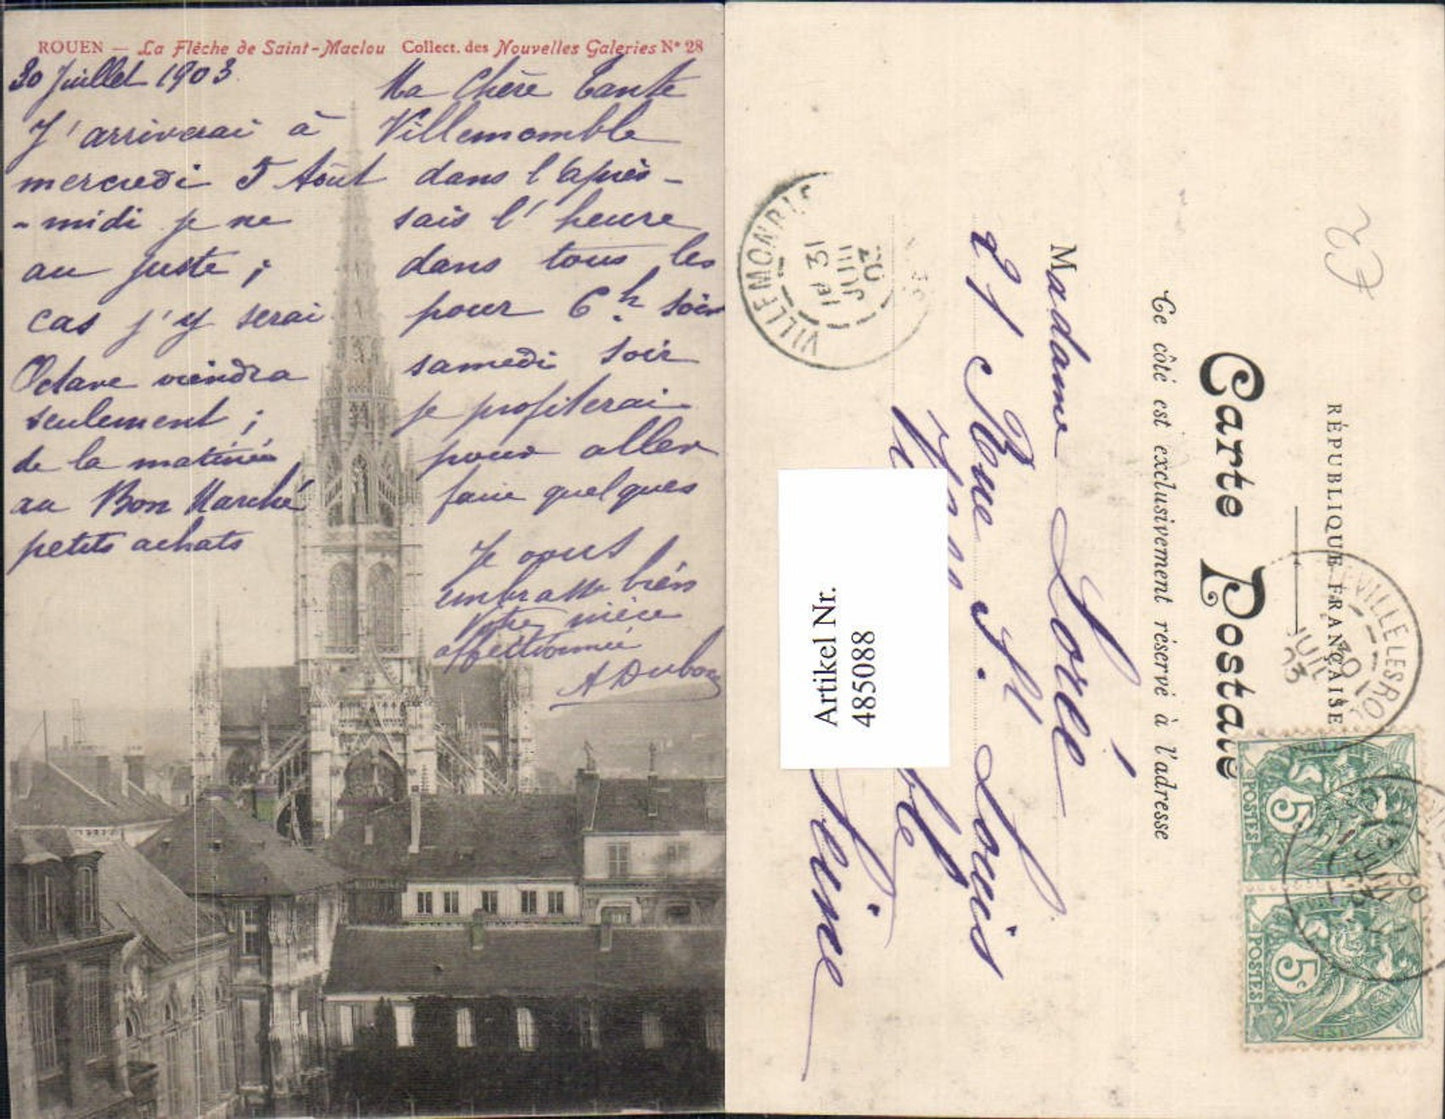 ROUEN — La Flèche de Saint-Maclou Collect. des Nouvelles Galeries N° 28
30 Juillet 1903 Ma Chère Tante
J'arriverai à Villemomble
mercredi 5 Août dans l'après-
-midi je ne sais l'heure
au juste ; dans tous les
cas j'y serai pour 6h. soir
Octave viendra samedi soir
seulement ; je profiterai
de la matinée pour aller
au Bon Marché faire quelques
petits achats
Je vous
embrasse bien
Votre nièce
affectionnée
A Dubosc
RÉPUBLIQUE FRANÇAISE
Carte Postale
Ce côté est exclusivement réservé à l'adresse
Madame Loré
21 Rue St. Louis
Seine
Artikel Nr.
485088
VILLEMOMBLE
31
JUIL
03
VILLE LES ROUEN
30
JUIL
03
5c
POSTES
5c
POSTES